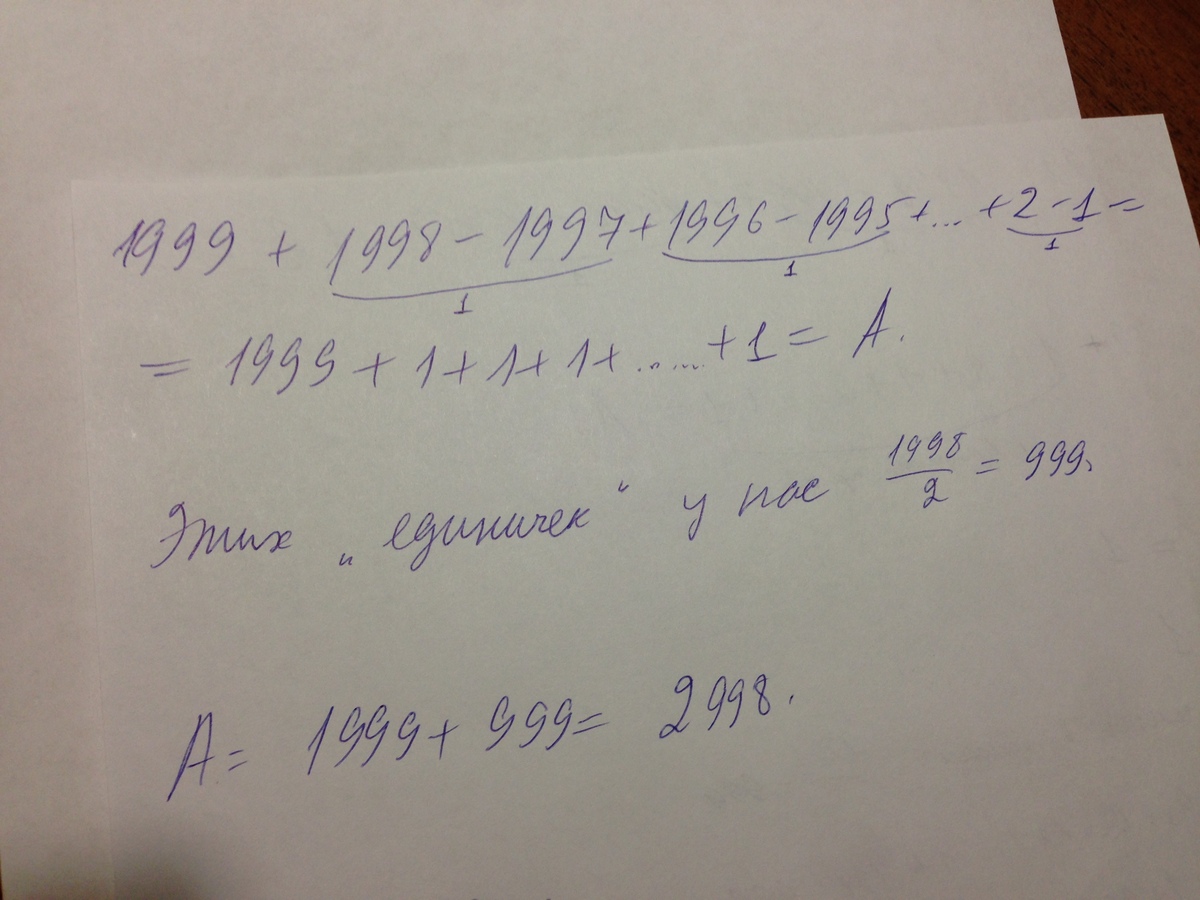 1999 + 1998 - 1997 + 1996 - 1995 + ... + 2 - 1 =
1 1 1
= 1999 + 1 + 1 + 1 + ...... + 1 = A.
Этих „единичек“ у нас 1998/2 = 999.
A = 1999 + 999 = 2998.